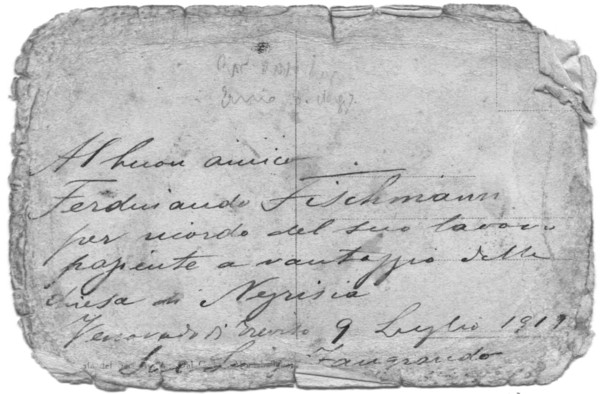 Al buon amico
Ferdinando Fischmann
per ricordo del suo lavoro
paziente a vantaggio della
chiesa di Negrisia
Vescovado di Treviso 9 Luglio 1919
Zangrando